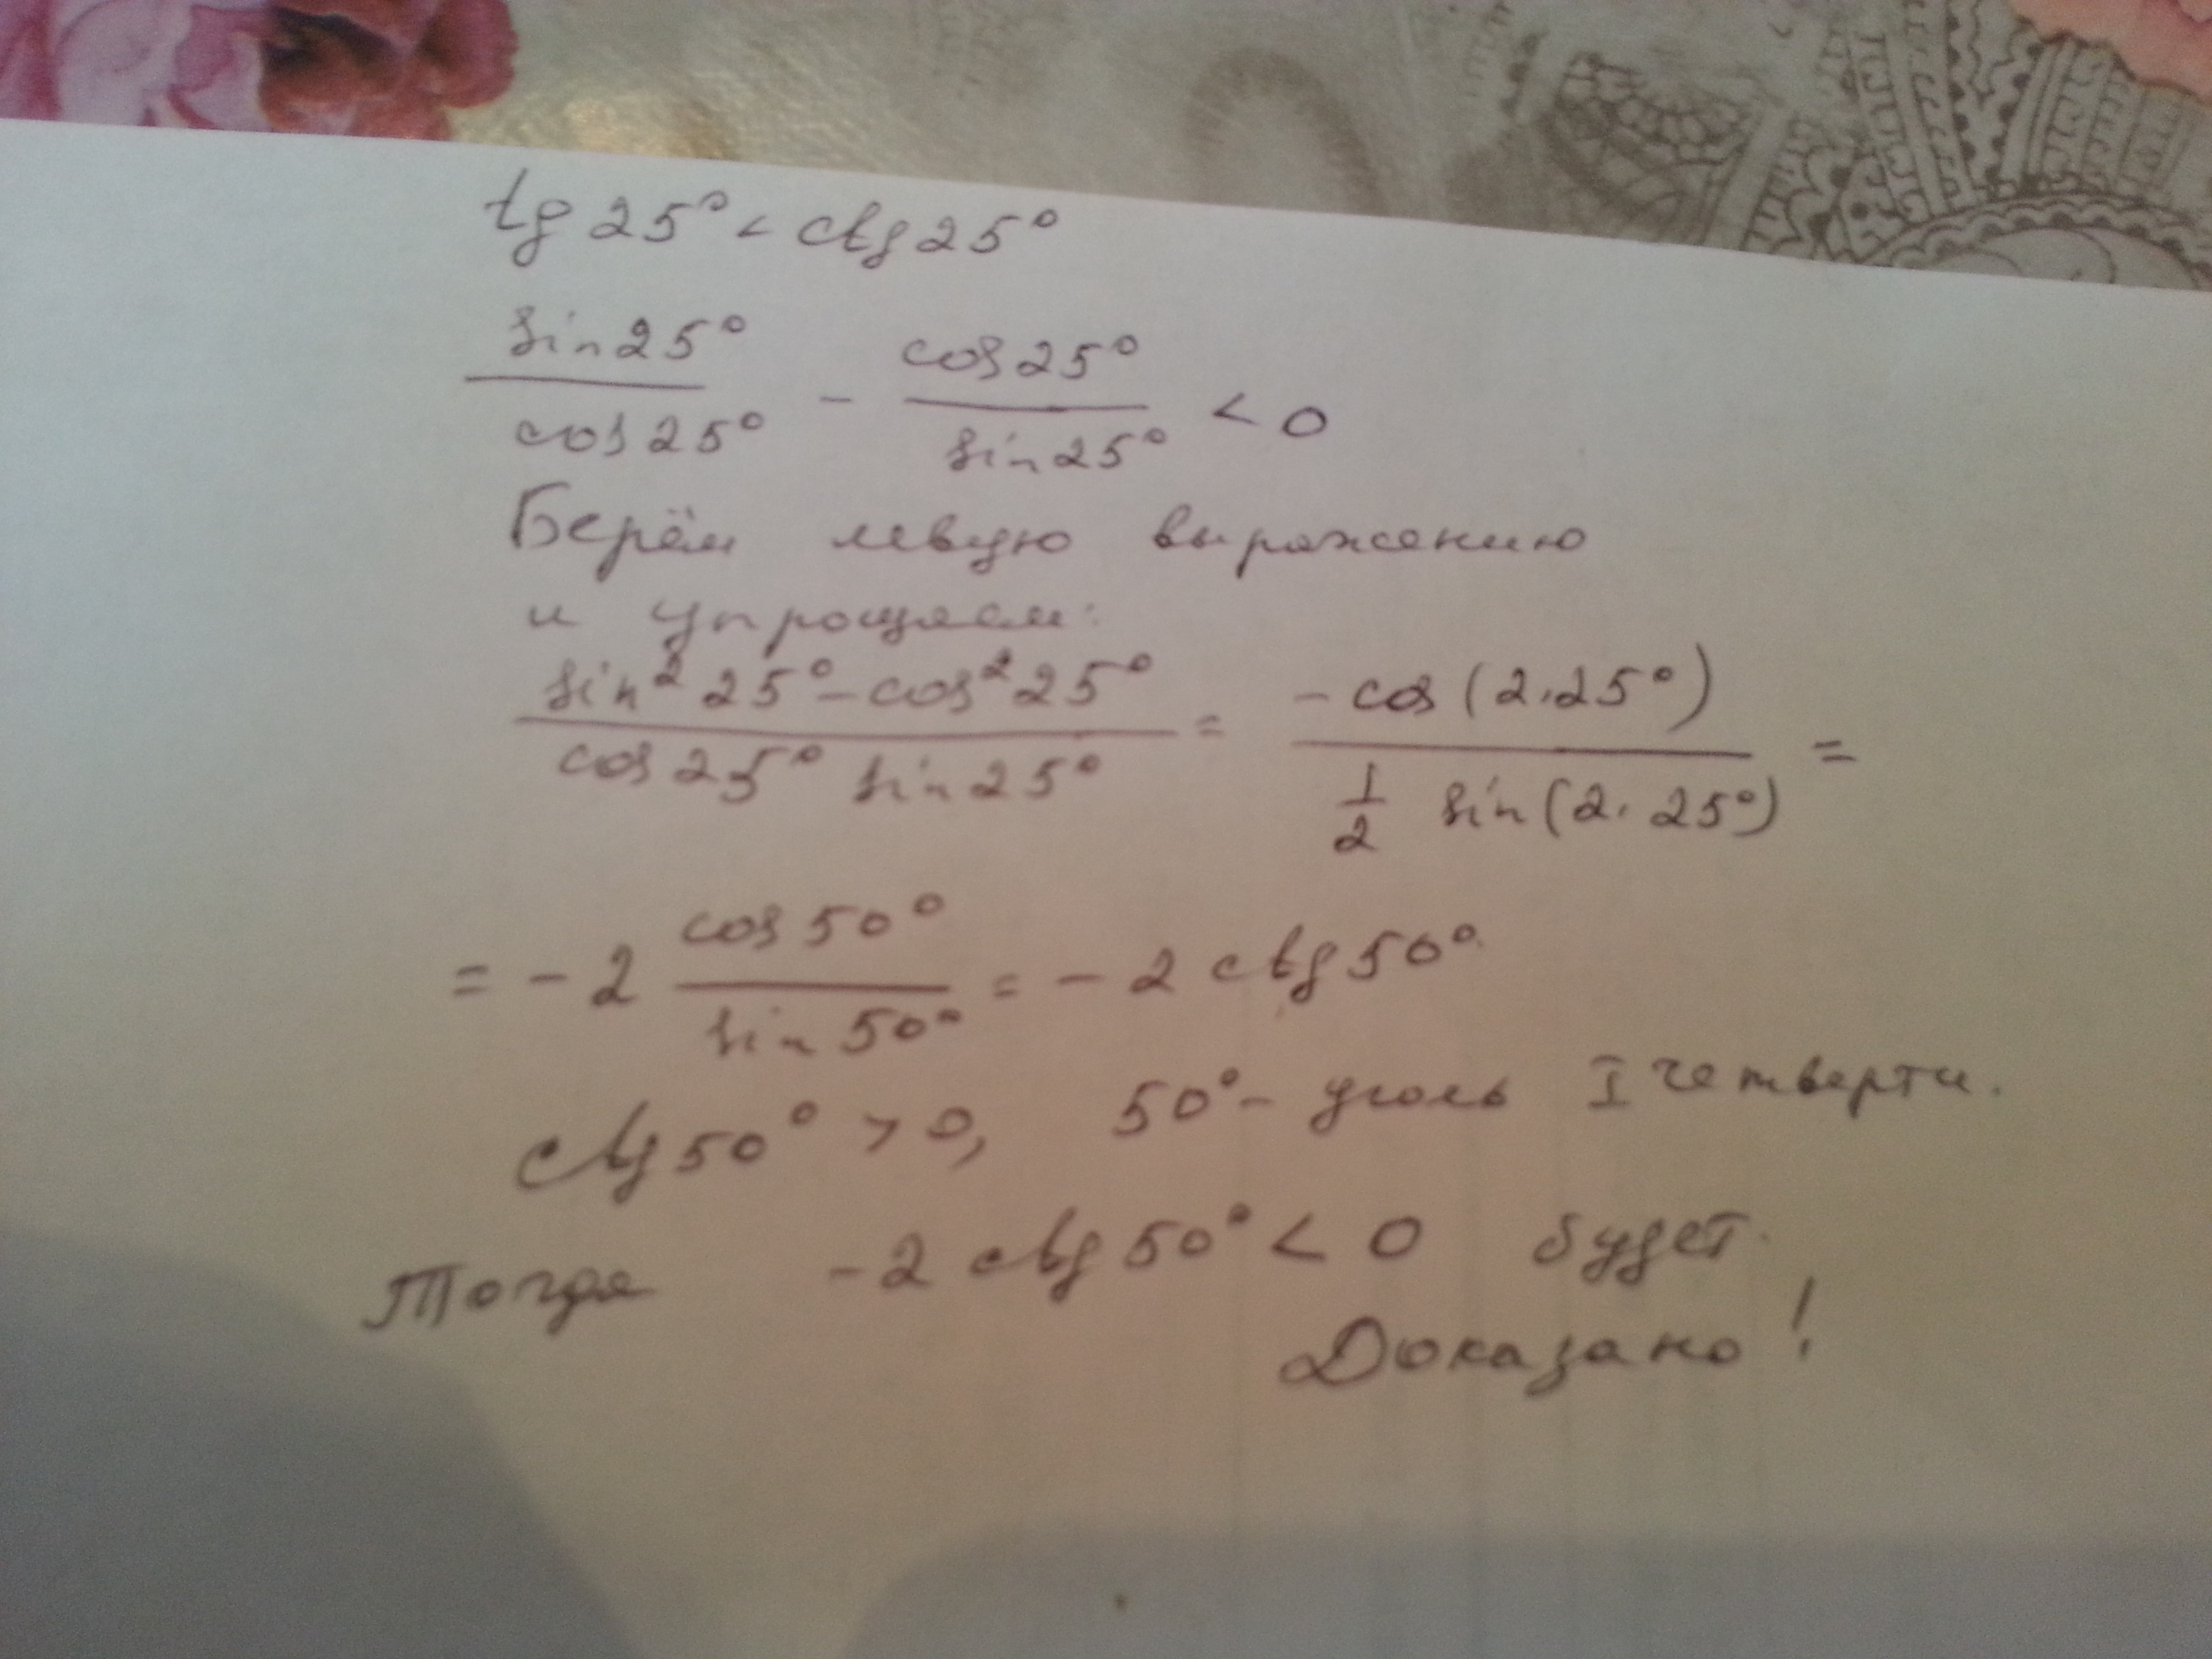 tg 25° < ctg 25°
sin 25° / cos 25° - cos 25° / sin 25° < 0
Берём левую выражению
и упрощаем:
sin² 25° - cos² 25° / cos 25° sin 25° = - cos (2·25°) / 1/2 sin (2·25°) =
= - 2 cos 50° / sin 50° = - 2 ctg 50°
ctg 50° > 0, 50° - уголь I четверти.
Тогда - 2 ctg 50° < 0 будет.
Доказано!